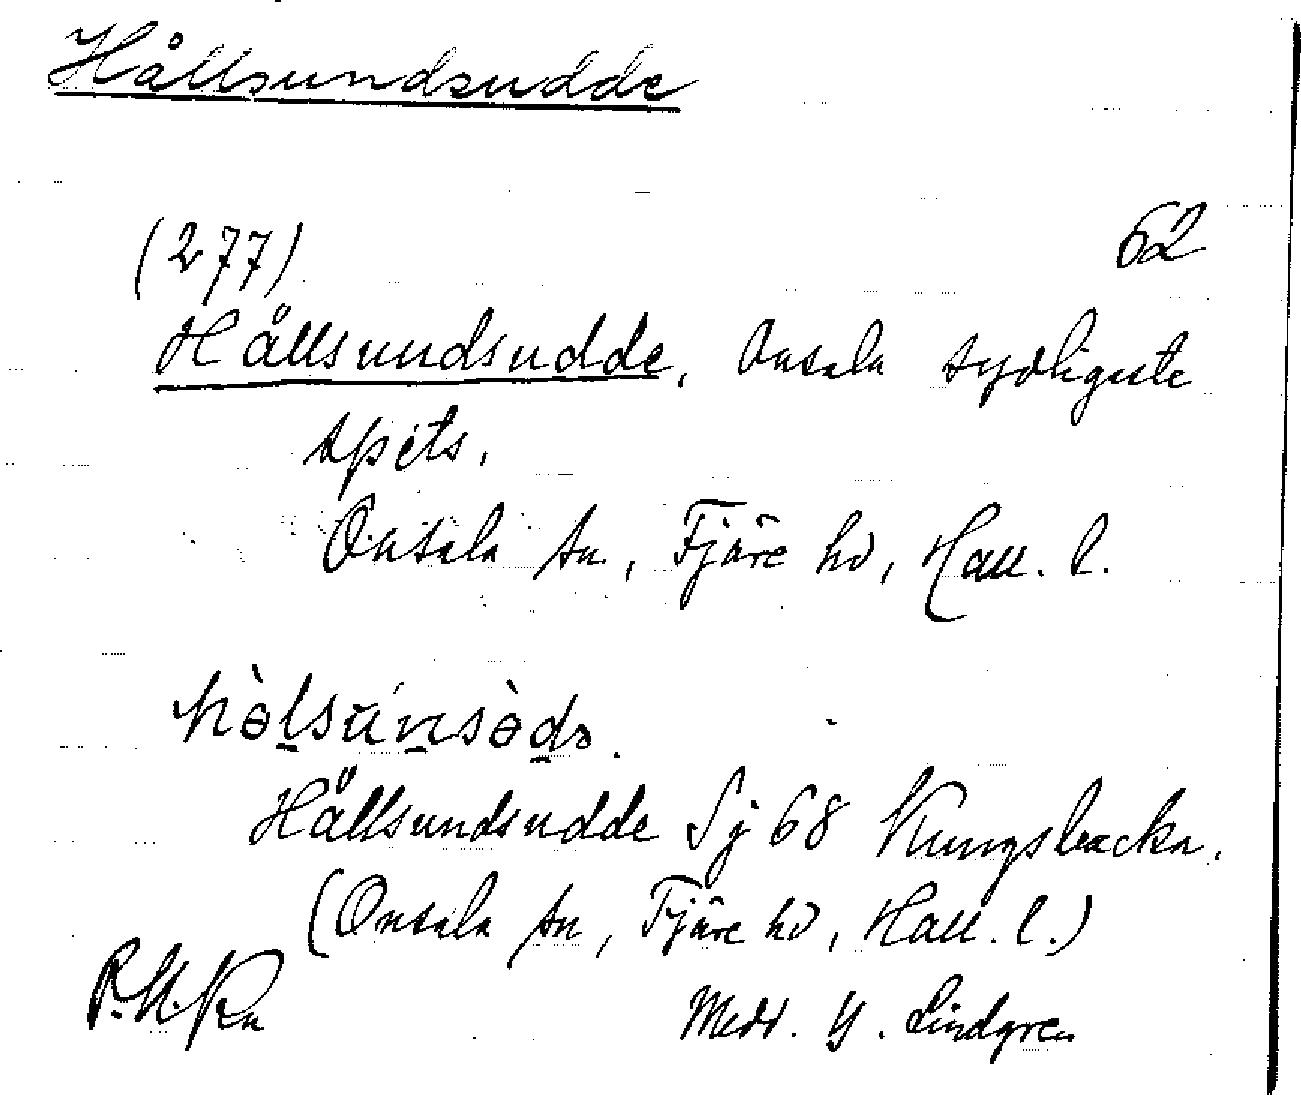 Hållsundsudde
(277) 62
Hållsundsudde, Onsala sydligaste
spets.
Onsala sn, Fjäre hd, Hall. l.
Hållsundsudde Sj 68 Kungsbacka.
(Onsala sn, Fjäre hd, Hall. l.)
Medd. G. Lindgren